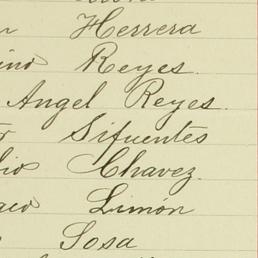 Herrera
Reyes.
Angel Reyes.
Sifuentes
Chavez.
Limón
Sosa